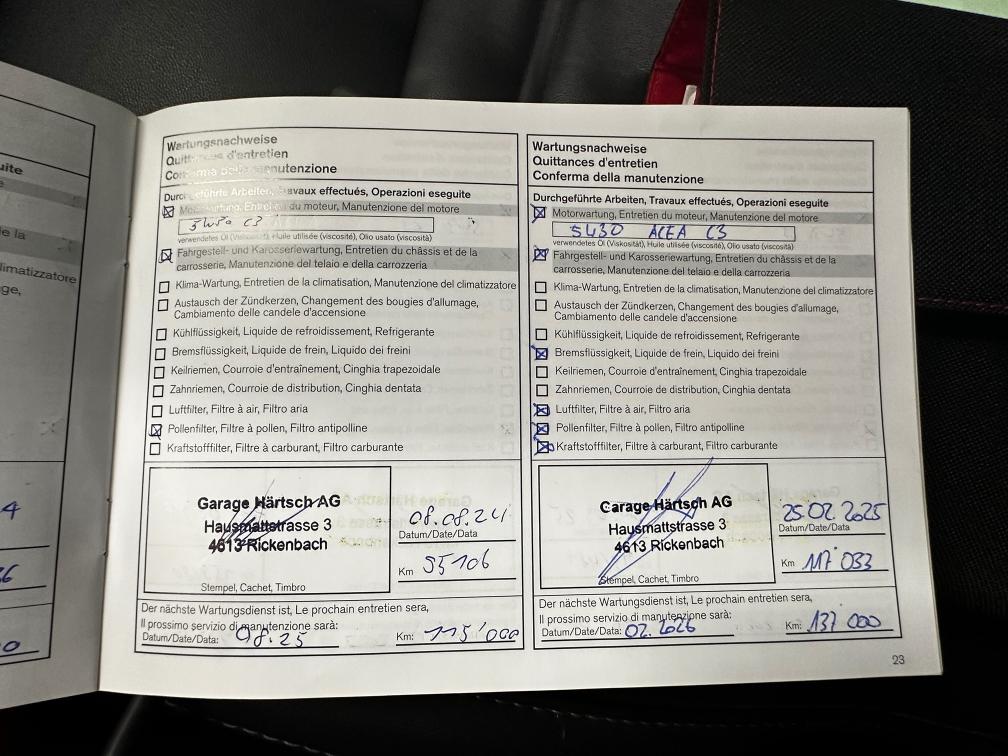 uite
e
e la
limatizzatore
ge,
4
6
0
Wartungsnachweise
Quittances d'entretien
Conferma della manutenzione
Durchgeführte Arbeiten, Travaux effectués, Operazioni eseguite
Motorwartung, Entretien du moteur, Manutenzione del motore
5W30 C3
verwendetes Öl (Viskosität), Huile utilisée (viscosité), Olio usato (viscosità)
Fahrgestell- und Karosseriewartung, Entretien du châssis et de la
carrosserie, Manutenzione del telaio e della carrozzeria
Klima-Wartung, Entretien de la climatisation, Manutenzione del climatizzatore
Austausch der Zündkerzen, Changement des bougies d'allumage,
Cambiamento delle candele d'accensione
Kühlflüssigkeit, Liquide de refroidissement, Refrigerante
Bremsflüssigkeit, Liquide de frein, Liquido dei freini
Keilriemen, Courroie d'entraînement, Cinghia trapezoidale
Zahnriemen, Courroie de distribution, Cinghia dentata
Luftfilter, Filtre à air, Filtro aria
Pollenfilter, Filtre à pollen, Filtro antipolline
Kraftstofffilter, Filtre à carburant, Filtro carburante
Garage Härtsch AG
Hausmattstrasse 3
4613 Rickenbach
Stempel, Cachet, Timbro
08.08.24
Datum/Date/Data
Km 95106
Der nächste Wartungsdienst ist, Le prochain entretien sera,
Il prossimo servizio di manutenzione sarà:
Datum/Date/Data: 08.25 Km: 115'000
Wartungsnachweise
Quittances d'entretien
Conferma della manutenzione
Durchgeführte Arbeiten, Travaux effectués, Operazioni eseguite
Motorwartung, Entretien du moteur, Manutenzione del motore
5W30 ACEA C3
verwendetes Öl (Viskosität), Huile utilisée (viscosité), Olio usato (viscosità)
Fahrgestell- und Karosseriewartung, Entretien du châssis et de la
carrosserie, Manutenzione del telaio e della carrozzeria
Klima-Wartung, Entretien de la climatisation, Manutenzione del climatizzatore
Austausch der Zündkerzen, Changement des bougies d'allumage,
Cambiamento delle candele d'accensione
Kühlflüssigkeit, Liquide de refroidissement, Refrigerante
Bremsflüssigkeit, Liquide de frein, Liquido dei freini
Keilriemen, Courroie d'entraînement, Cinghia trapezoidale
Zahnriemen, Courroie de distribution, Cinghia dentata
Luftfilter, Filtre à air, Filtro aria
Pollenfilter, Filtre à pollen, Filtro antipolline
Kraftstofffilter, Filtre à carburant, Filtro carburante
Garage Härtsch AG
Hausmattstrasse 3
4613 Rickenbach
Stempel, Cachet, Timbro
25.02.2025
Datum/Date/Data
Km 117'033
Der nächste Wartungsdienst ist, Le prochain entretien sera,
Il prossimo servizio di manutenzione sarà:
Datum/Date/Data: 02.2026 Km: 137 000
23